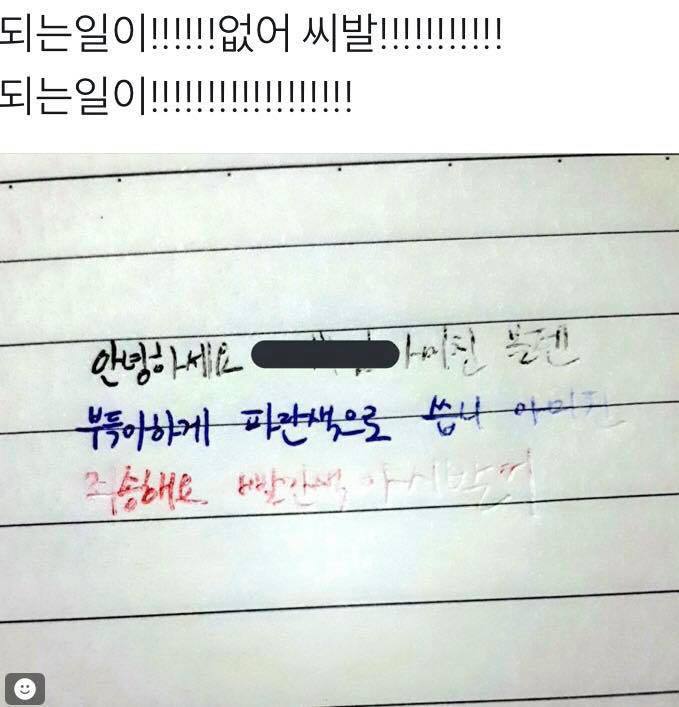 되는일이!!!!!!없어 씨발!!!!!!!!!!!
되는일이!!!!!!!!!!!!!!!!!!
안녕하세요 아미친 볼펜
부득이하게 파란색으로 씁니 아미친
죄송해요 빨간색 아시발